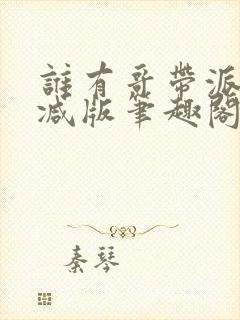 誰有哥帶派
减版筆趣閣
秦琴